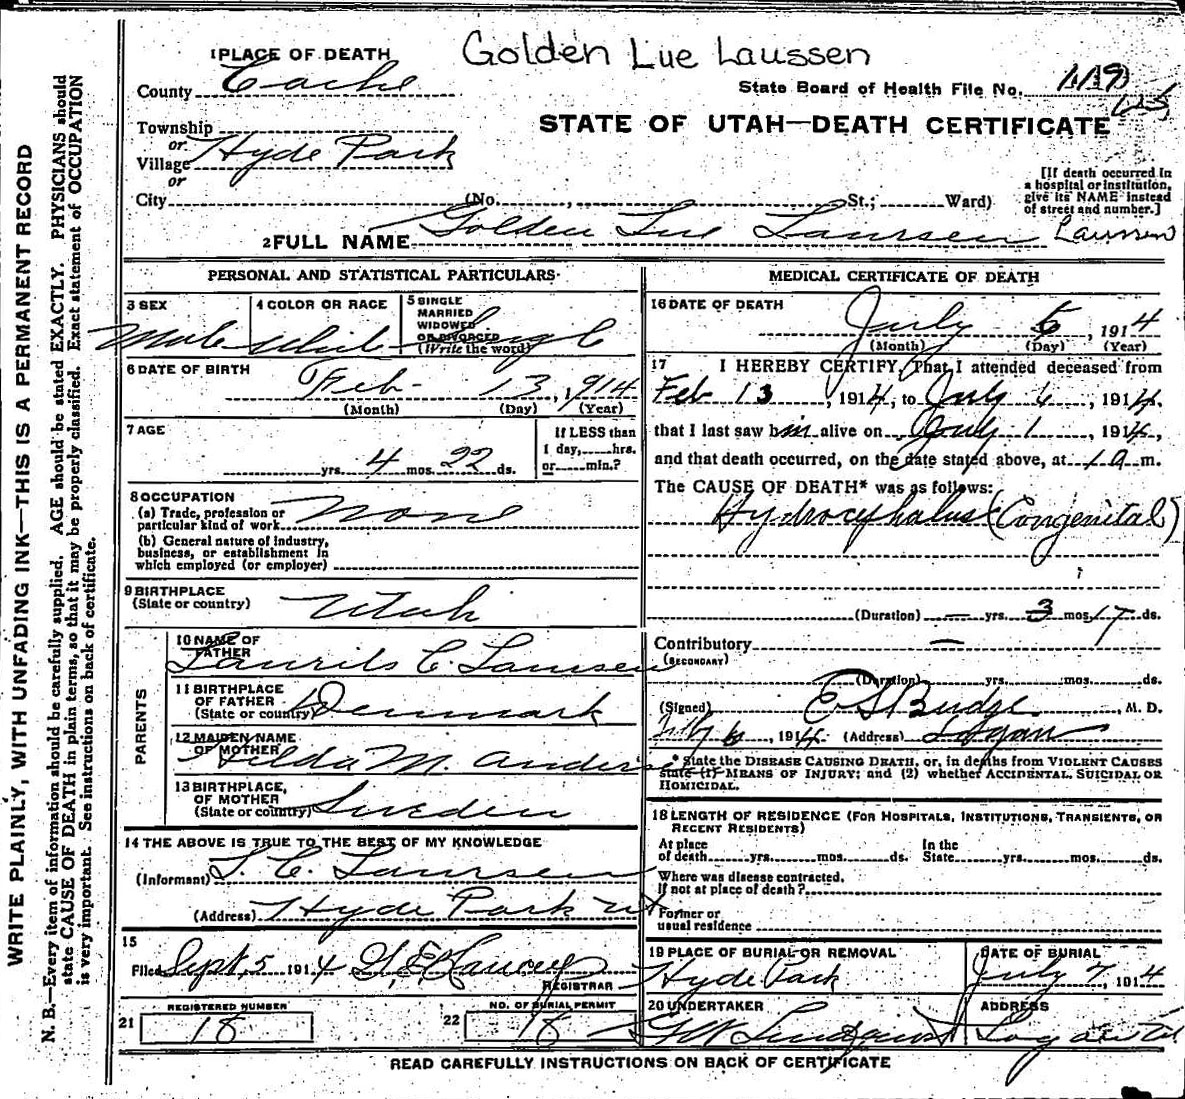 Golden Lue Laussen
1 PLACE OF DEATH
County Cache
State Board of Health File No. 119
STATE OF UTAH—DEATH CERTIFICATE
Township
or
Village Hyde Park
or
City (No. , St.; Ward)
[If death occurred in
a hospital or institution,
give its NAME instead
of street and number.]
2 FULL NAME Golden Lue Laursen Laussen
PERSONAL AND STATISTICAL PARTICULARS
3 SEX
Male
4 COLOR OR RACE
White
5 SINGLE
MARRIED
WIDOWED
OR DIVORCED
(Write the word)
Single
6 DATE OF BIRTH
Feb 13, 1914
(Month) (Day) (Year)
7 AGE
yrs. 4 mos. 22 ds.
If LESS than
1 day, hrs.
or min.?
8 OCCUPATION
(a) Trade, profession or
particular kind of work None
(b) General nature of industry,
business, or establishment in
which employed (or employer)
9 BIRTHPLACE
(State or country) Utah
PARENTS
10 NAME OF
FATHER Laurits C. Laursen
11 BIRTHPLACE
OF FATHER
(State or country) Denmark
12 MAIDEN NAME
OF MOTHER Hilda M. Anderson
13 BIRTHPLACE,
OF MOTHER
(State or country) Sweden
14 THE ABOVE IS TRUE TO THE BEST OF MY KNOWLEDGE
(Informant) L. C. Laursen
(Address) Hyde Park Ut
15
Filed Sept, 5 1914
REGISTRAR
REGISTERED NUMBER
21 18
NO. OF BURIAL PERMIT
22 18
MEDICAL CERTIFICATE OF DEATH
16 DATE OF DEATH
July 6, 1914
(Month) (Day) (Year)
17 I HEREBY CERTIFY, That I attended deceased from
Feb 13, 1914, to July 6, 1914.
that I last saw him alive on July 1, 1914,
and that death occurred, on the date stated above, at 1 a m.
The CAUSE OF DEATH* was as follows:
Hydrocephalus (Congenital)
(Duration) — yrs. 3 mos. 17 ds.
Contributory —
(SECONDARY)
(Duration) yrs. mos. ds.
(Signed) E S Budge, M. D.
July 6, 1914 (Address) Logan
* State the DISEASE CAUSING DEATH, or, in deaths from VIOLENT CAUSES
state (1) MEANS OF INJURY; and (2) whether ACCIDENTAL, SUICIDAL OR
HOMICIDAL.
18 LENGTH OF RESIDENCE (FOR HOSPITALS, INSTITUTIONS, TRANSIENTS, OR
RECENT RESIDENTS)
At place
of death yrs. mos. ds.
In the
State yrs. mos. ds.
Where was disease contracted,
If not at place of death?
Former or
usual residence
19 PLACE OF BURIAL OR REMOVAL
Hyde Park
DATE OF BURIAL
July 7, 1914
20 UNDERTAKER
G W Lindquist
ADDRESS
Logan Ut.
READ CAREFULLY INSTRUCTIONS ON BACK OF CERTIFICATE
WRITE PLAINLY, WITH UNFADING INK—THIS IS A PERMANENT RECORD
N. B.—Every item of information should be carefully supplied. AGE should be stated EXACTLY. PHYSICIANS should
state CAUSE OF DEATH in plain terms, so that it may be properly classified. Exact statement of OCCUPATION
is very important. See instructions on back of certificate.